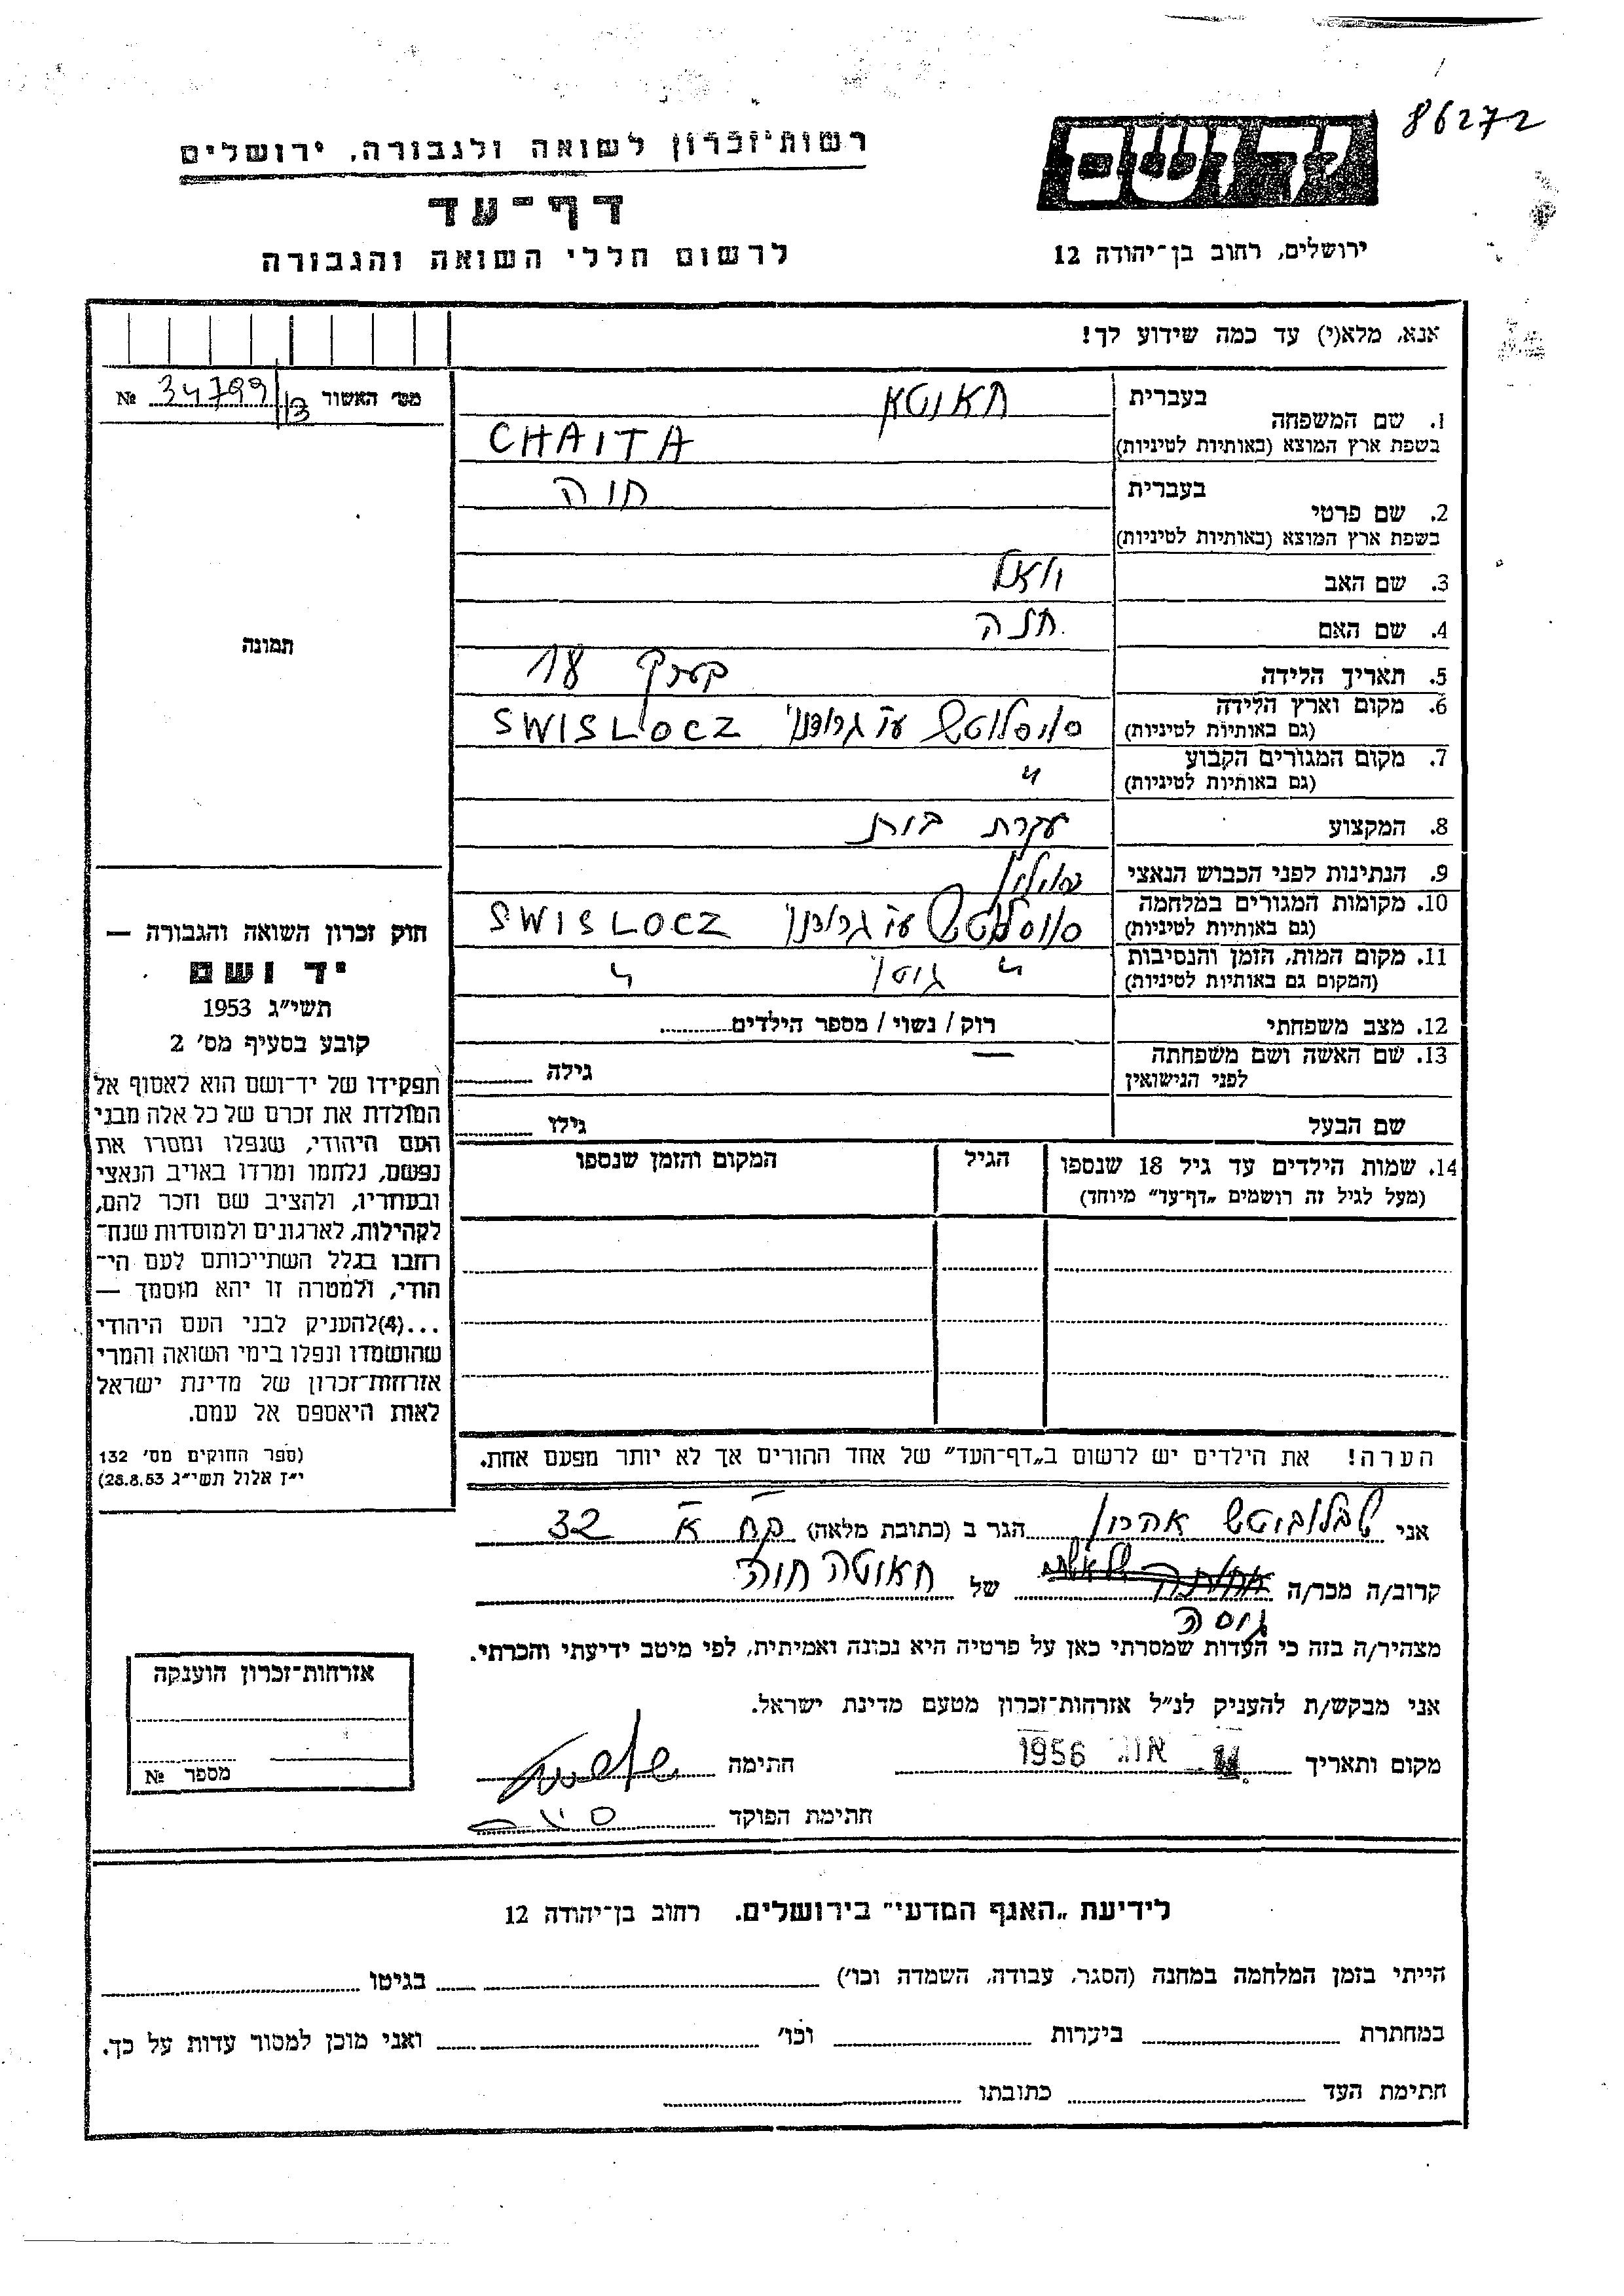 86272
יד ושם
רשות־זכרון לשואה ולגבורה, ירושלים
דף־עד
לרשום חללי השואה והגבורה
ירושלים, רחוב בן־יהודה 12
אנא, מלא(י) עד כמה שידוע לך!
מס׳ האשור № 34799/13
בעברית חאוטא
1. שם המשפחה
בשפת ארץ המוצא (באותיות לטיניות) CHAITA
בעברית חוה
2. שם פרטי
בשפת ארץ המוצא (באותיות לטיניות)
3. שם האב
4. שם האם חנה
5. תאריך הלידה בערך 18
6. מקום וארץ הלידה
(גם באותיות לטיניות) סויסלוטש ע״י גרודנו SWISLOCZ
7. מקום המגורים הקבוע
(גם באותיות לטיניות) "
8. המקצוע עקרת בית
9. הנתינות לפני הכבוש הנאצי פולין
10. מקומות המגורים במלחמה
(גם באותיות לטיניות) סויסלוטש ע״י גרודנו SWISLOCZ
11. מקום המות, הזמן והנסיבות
(המקום גם באותיות לטיניות) " "
12. מצב משפחתי רוק / נשוי / מספר הילדים
13. שם האשה ושם משפחתה
לפני הנישואין — גילה
שם הבעל גילו
14. שמות הילדים עד גיל 18 שנספו
(מעל לגיל זה רושמים „דף־עד״ מיוחד)
הגיל
המקום והזמן שנספו
הערה! את הילדים יש לרשום ב„דף־העד״ של אחד ההורים אך לא יותר מפעם אחת.
תמונה
חוק זכרון השואה והגבורה —
יד ושם
תשי״ג 1953
קובע בסעיף מס׳ 2
תפקידו של יד־ושם הוא לאסוף אל
המולדת את זכרם של כל אלה מבני
העם היהודי, שנפלו ומסרו את
נפשם, נלחמו ומרדו באויב הנאצי
ובעוזריו, ולהציב שם וזכר להם,
לקהילות, לארגונים ולמוסדות שנח־
רבו בגלל השתייכותם לעם הי־
הודי, ולמטרה זו יהא מוסמך —
...(4) להעניק לבני העם היהודי
שהושמדו ונפלו בימי השואה והמרי
אזרחות־זכרון של מדינת ישראל
לאות היאספם אל עמם.
(ספר החוקים מס׳ 132
י״ז אלול תשי״ג 28.8.53)
אני אהרון הגר ב (כתובת מלאה) 32
קרוב/ה מכר/ה של חאוטה חוה
גיסה
מצהיר/ה בזה כי העדות שמסרתי כאן על פרטיה היא נכונה ואמיתית, לפי מיטב ידיעתי והכרתי.
אני מבקש/ת להעניק לנ״ל אזרחות־זכרון מטעם מדינת ישראל.
מקום ותאריך אוג 1956 חתימה
חתימת הפוקד
אזרחות־זכרון הוענקה
מספר №
לידיעת „האגף המדעי״ בירושלים. רחוב בן־יהודה 12
הייתי בזמן המלחמה במחנה (הסגר, עבודה, השמדה וכו׳) בגיטו
במחתרת ביערות וכו׳ ואני מוכן למסור עדות על כך.
חתימת העד כתובתו